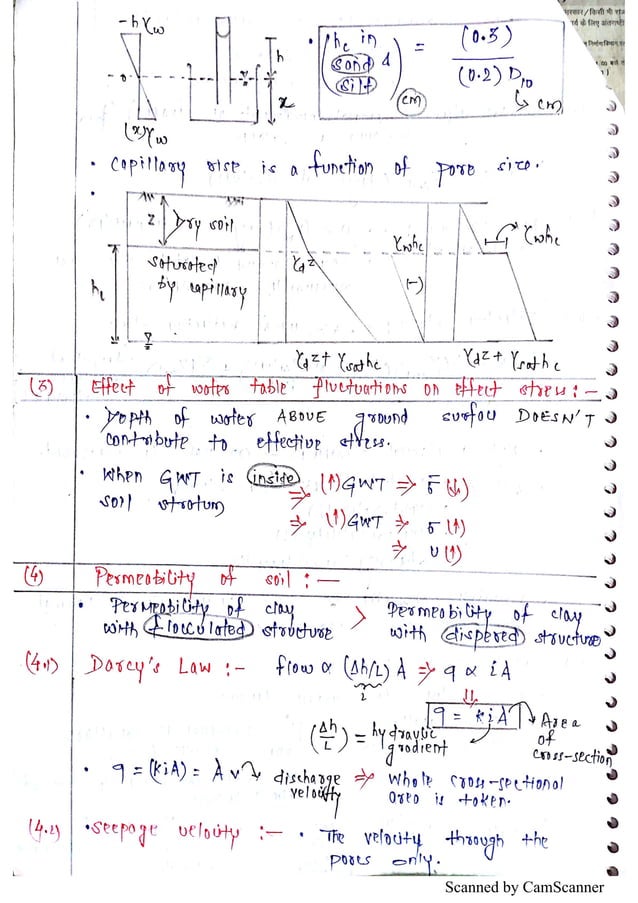 -hγw
h
x
(x)γw
• (hc in sand & silt) (cm) = (0.3) / (0.2) D10 → cm
• Capillary rise is a function of pore size.
•
z
Dry soil
saturated
by capillary
hc
γdz
γwhc
(-)
γwhc
γdz + γsathc
γdz + γsathc
(3) Effect of water table fluctuations on effect stress :-
• Depth of water ABOVE ground surface DOESN'T
contribute to effective stress.
• When GWT is inside
soil stratum
⇒ (↑)GWT ⇒ σ̄ (↓)
⇒ (↑)GWT ⇒ σ (↑)
⇒ U (↑)
(4) Permeability of soil :-
• Permeability of clay
with flocculated structure
>
Permeability of clay
with dispered structure
(4.1) Darcy's Law :- flow ∝ (Δh/L) A ⇒ q ∝ iA
i
⇓
q = kiA → Area
of
cross-section
(Δh/L) = hydraulic
gradient
• q = (kiA) = A v → discharge
velocity
⇒ Whole cross-sectional
area is taken.
(4.2) • Seepage velocity :- • The velocity through the
pores only.
Scanned by CamScanner